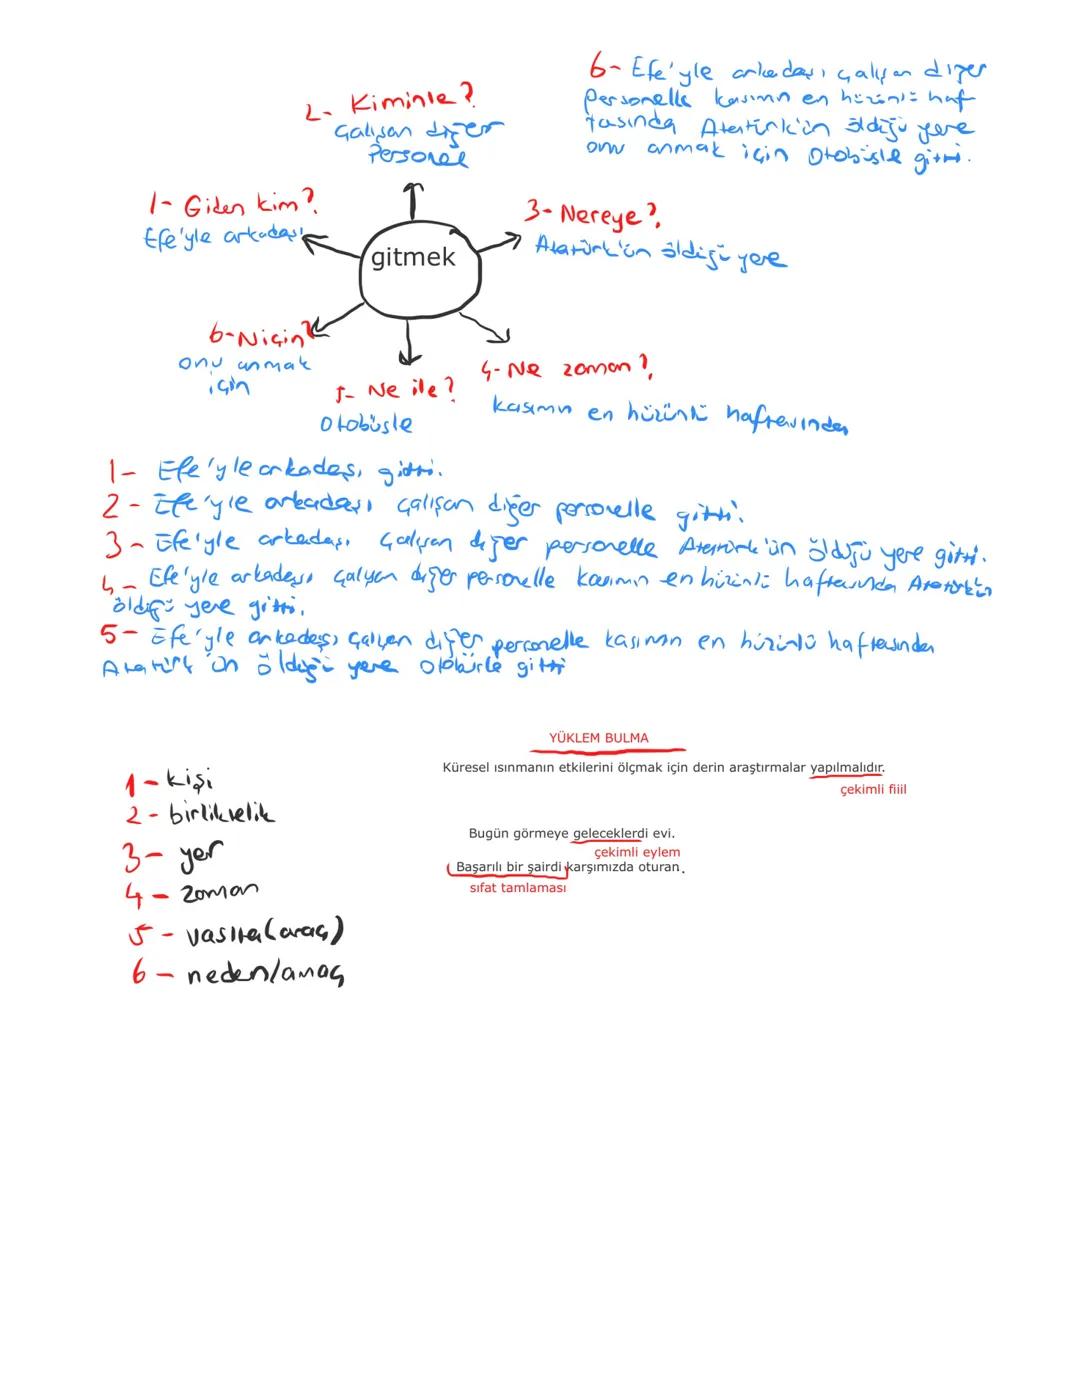 2- Kiminle?
Çalışan diğer
Personel
6- Efe'yle arkadaşı çalışan diğer
personelle kasımın en hüzünlü haf
tasında Atatürk'ün öldüğü yere
onu anmak için Otobüsle gitti.
1- Giden kim?
Efe'yle arkadaşı
3- Nereye?
Atatürk'ün öldüğü yere
gitmek
6- Niçin?
onu anmak
için
5- Ne ile?
Otobüsle
4- Ne zaman?
kasımın en hüzünlü haftasında
1- Efe'yle arkadaşı gitti.
2- Efe'yle arkadaşı çalışan diğer personelle gitti.
3- Efe'yle arkadaşı çalışan diğer personelle Atatürk'ün öldüğü yere gitti.
4- Efe'yle arkadaşı çalışan diğer personelle kasımın en hüzünlü haftasında Atatürk'ün
öldüğü yere gitti.
5- Efe'yle arkadaşı çalışan diğer personelle kasımın en hüzünlü haftasında
Atatürk'ün öldüğü yere otobüsle gitti
YÜKLEM BULMA
Küresel ısınmanın etkilerini ölçmak için derin araştırmalar yapılmalıdır.
çekimli fiiil
Bugün görmeye geleceklerdi evi.
çekimli eylem
Başarılı bir şairdi karşımızda oturan.
sıfat tamlaması
1- kişi
2- birliktelik
3- yer
4- zaman
5- vasıta(araç)
6- neden/amaç